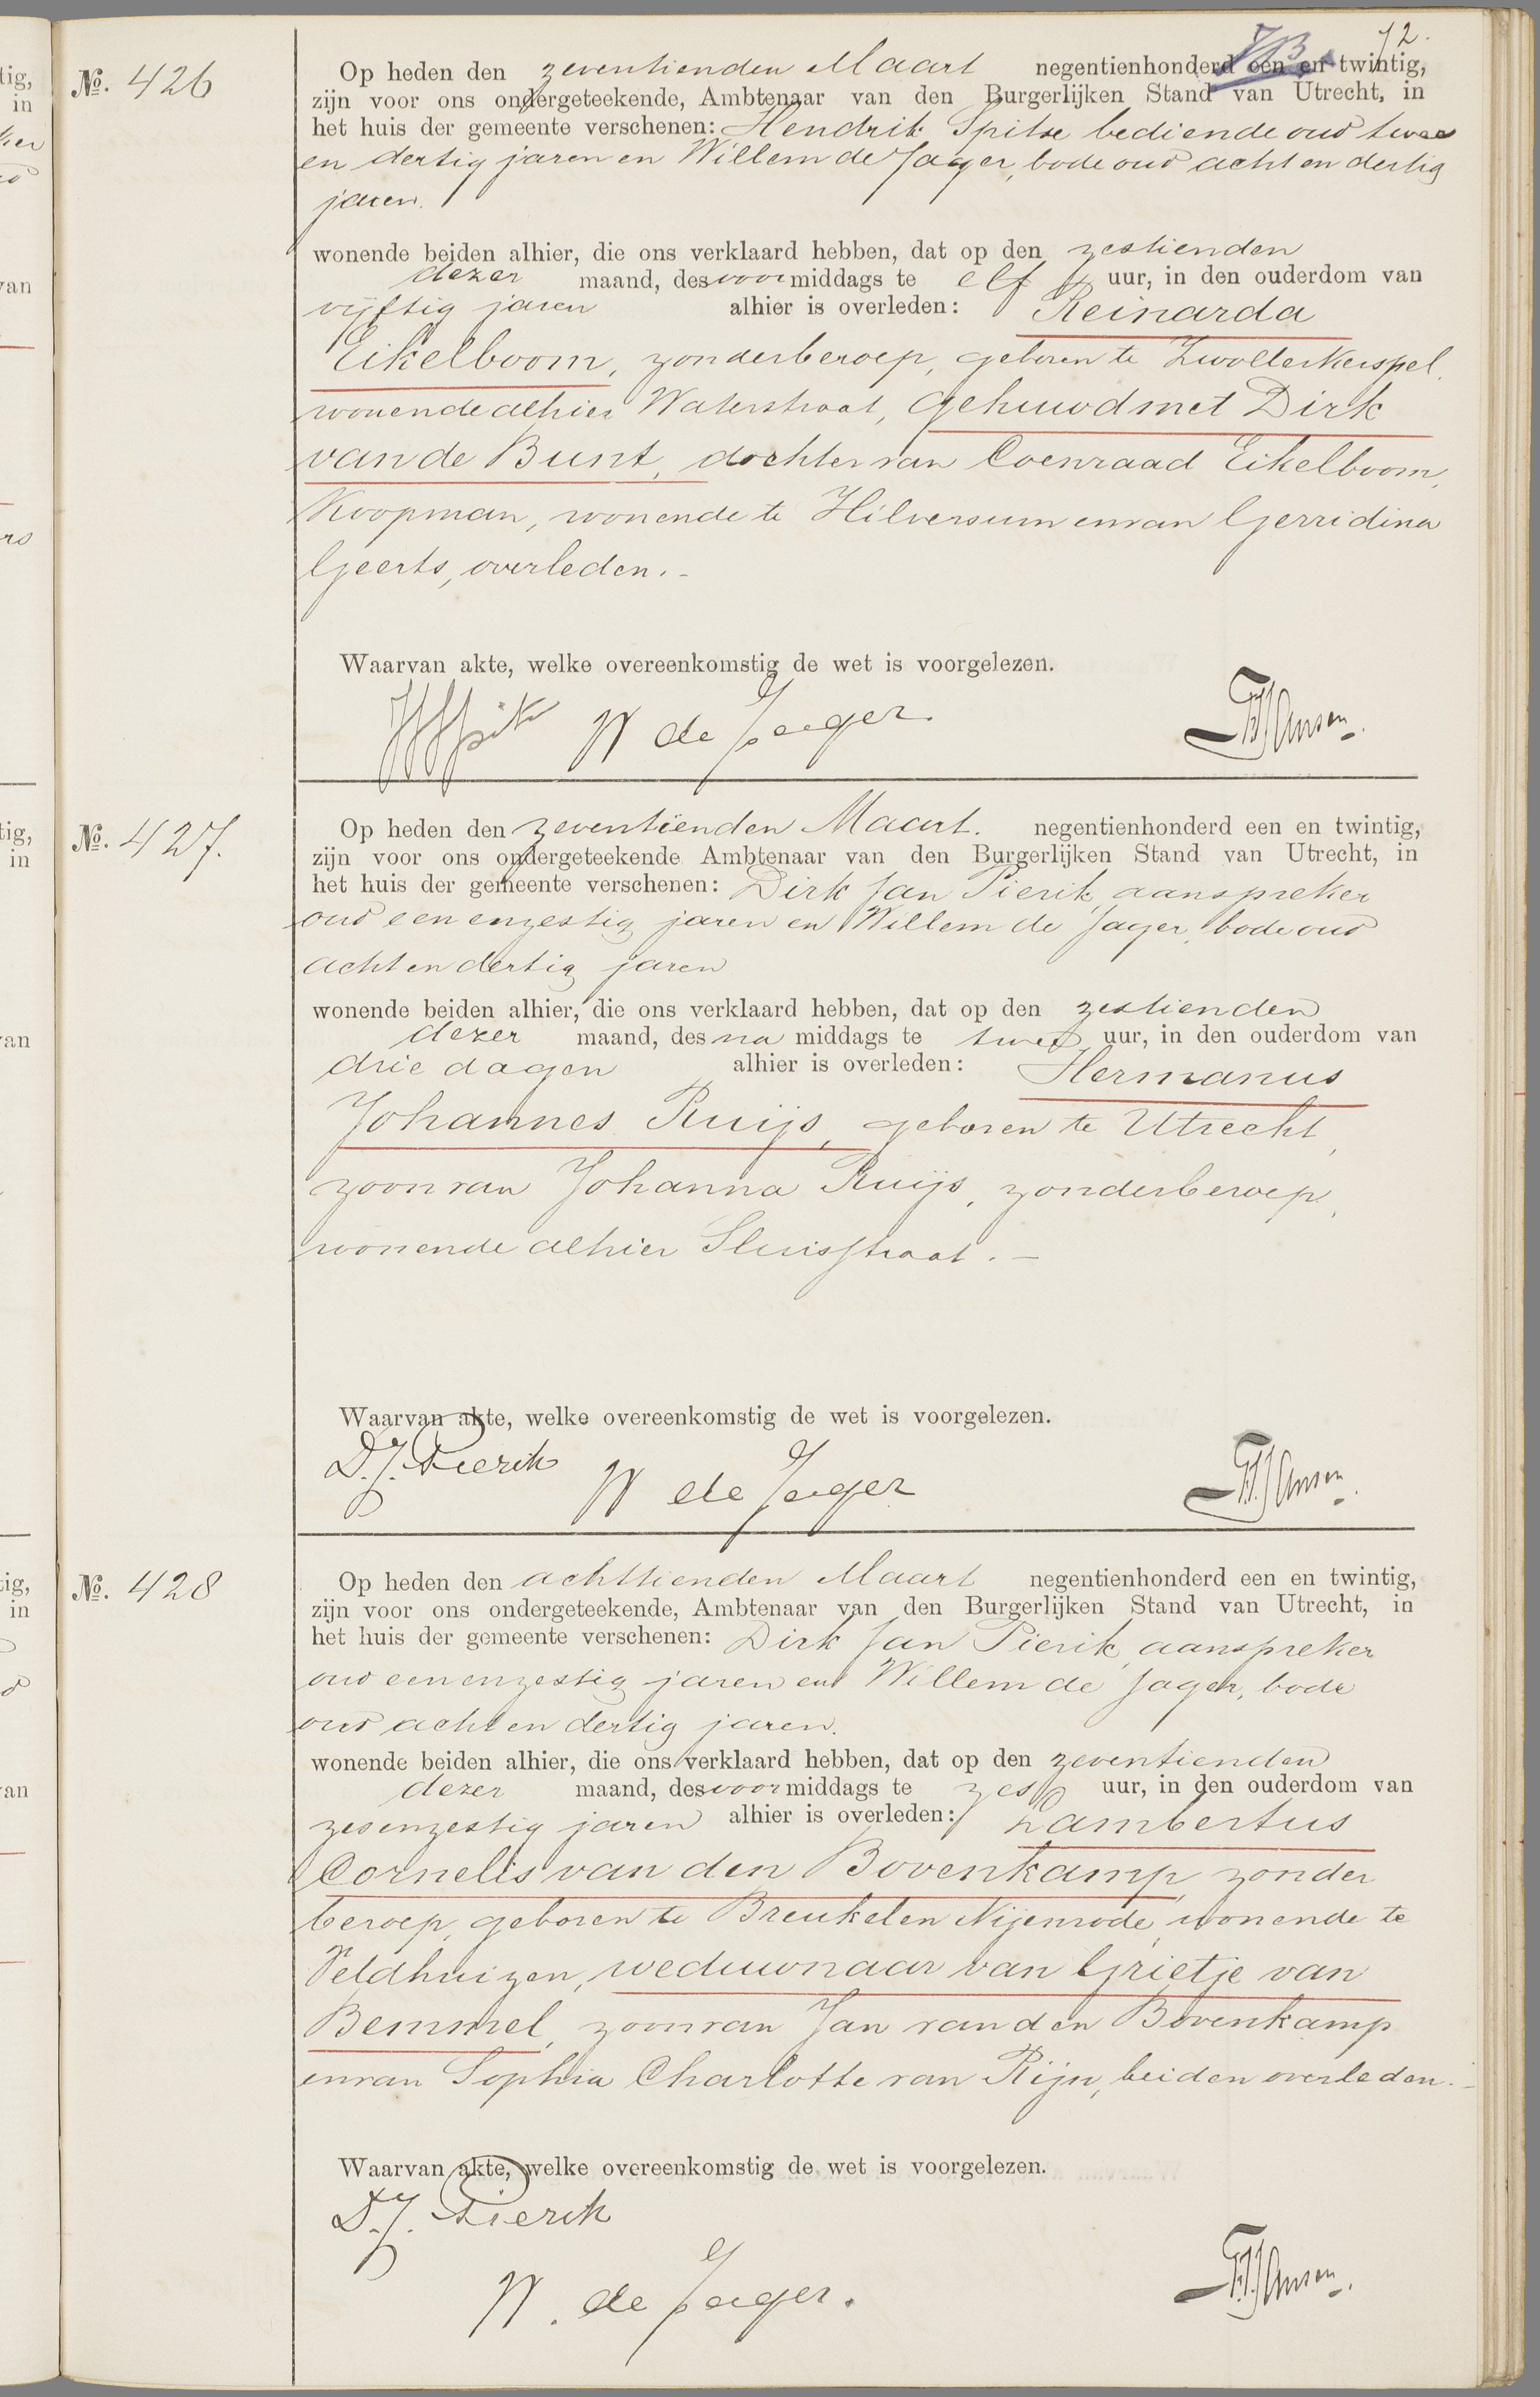 72.
No. 426
Op heden den zeventienden Maart negentienhonderd een en twintig,
zijn voor ons ondergeteekende, Ambtenaar van den Burgerlijken Stand van Utrecht, in
het huis der gemeente verschenen: Hendrik Spitse bediende oud twee
en dertig jaren en Willem de Jager, bode oud acht en dertig
jaren.
wonende beiden alhier, die ons verklaard hebben, dat op den zestienden
dezer maand, des voormiddags te elf uur, in den ouderdom van
vijftig jaren alhier is overleden: Reinarda
Eikelboom, zonder beroep, geboren te Zwollerkerspel,
wonende alhier Waterstraat, gehuwd met Dirk
van de Bunt, dochter van Coenraad Eikelboom,
Koopman, wonende te Hilversum en van Gerridina
Geerts, overleden.-
Waarvan akte, welke overeenkomstig de wet is voorgelezen.
W de Jager.
No. 427.
Op heden den zeventienden Maart. negentienhonderd een en twintig,
zijn voor ons ondergeteekende Ambtenaar van den Burgerlijken Stand van Utrecht, in
het huis der gemeente verschenen: Dirk Jan Pierik, aanspreker
oud een en zestig jaren en Willem de Jager, bode oud
acht en dertig jaren
wonende beiden alhier, die ons verklaard hebben, dat op den zestienden
dezer maand, des na middags te twee uur, in den ouderdom van
drie dagen alhier is overleden: Hermanus
Johannes Ruijs, geboren te Utrecht,
zoon van Johanna Ruijs, zonder beroep,
wonende alhier Sluisstraat.-
Waarvan akte, welke overeenkomstig de wet is voorgelezen.
D.J. Pierik W de Jager
No. 428
Op heden den achttienden Maart negentienhonderd een en twintig,
zijn voor ons ondergeteekende, Ambtenaar van den Burgerlijken Stand van Utrecht, in
het huis der gemeente verschenen: Dirk Jan Pierik, aanspreker
oud een en zestig jaren en Willem de Jager, bode
oud acht en dertig jaren.
wonende beiden alhier, die ons verklaard hebben, dat op den zeventienden
dezer maand, des voormiddags te zes uur, in den ouderdom van
zes en zestig jaren alhier is overleden: Lambertus
Cornelis van den Bovenkamp, zonder
beroep, geboren te Breukelen Nijenrode, wonende te
Veldhuizen, weduwnaar van Grietje van
Bemmel, zoon van Jan van den Bovenkamp
en van Sophia Charlotte van Rijn, beiden overleden.-
Waarvan akte, welke overeenkomstig de wet is voorgelezen.
D.J. Pierik
W. de Jager.